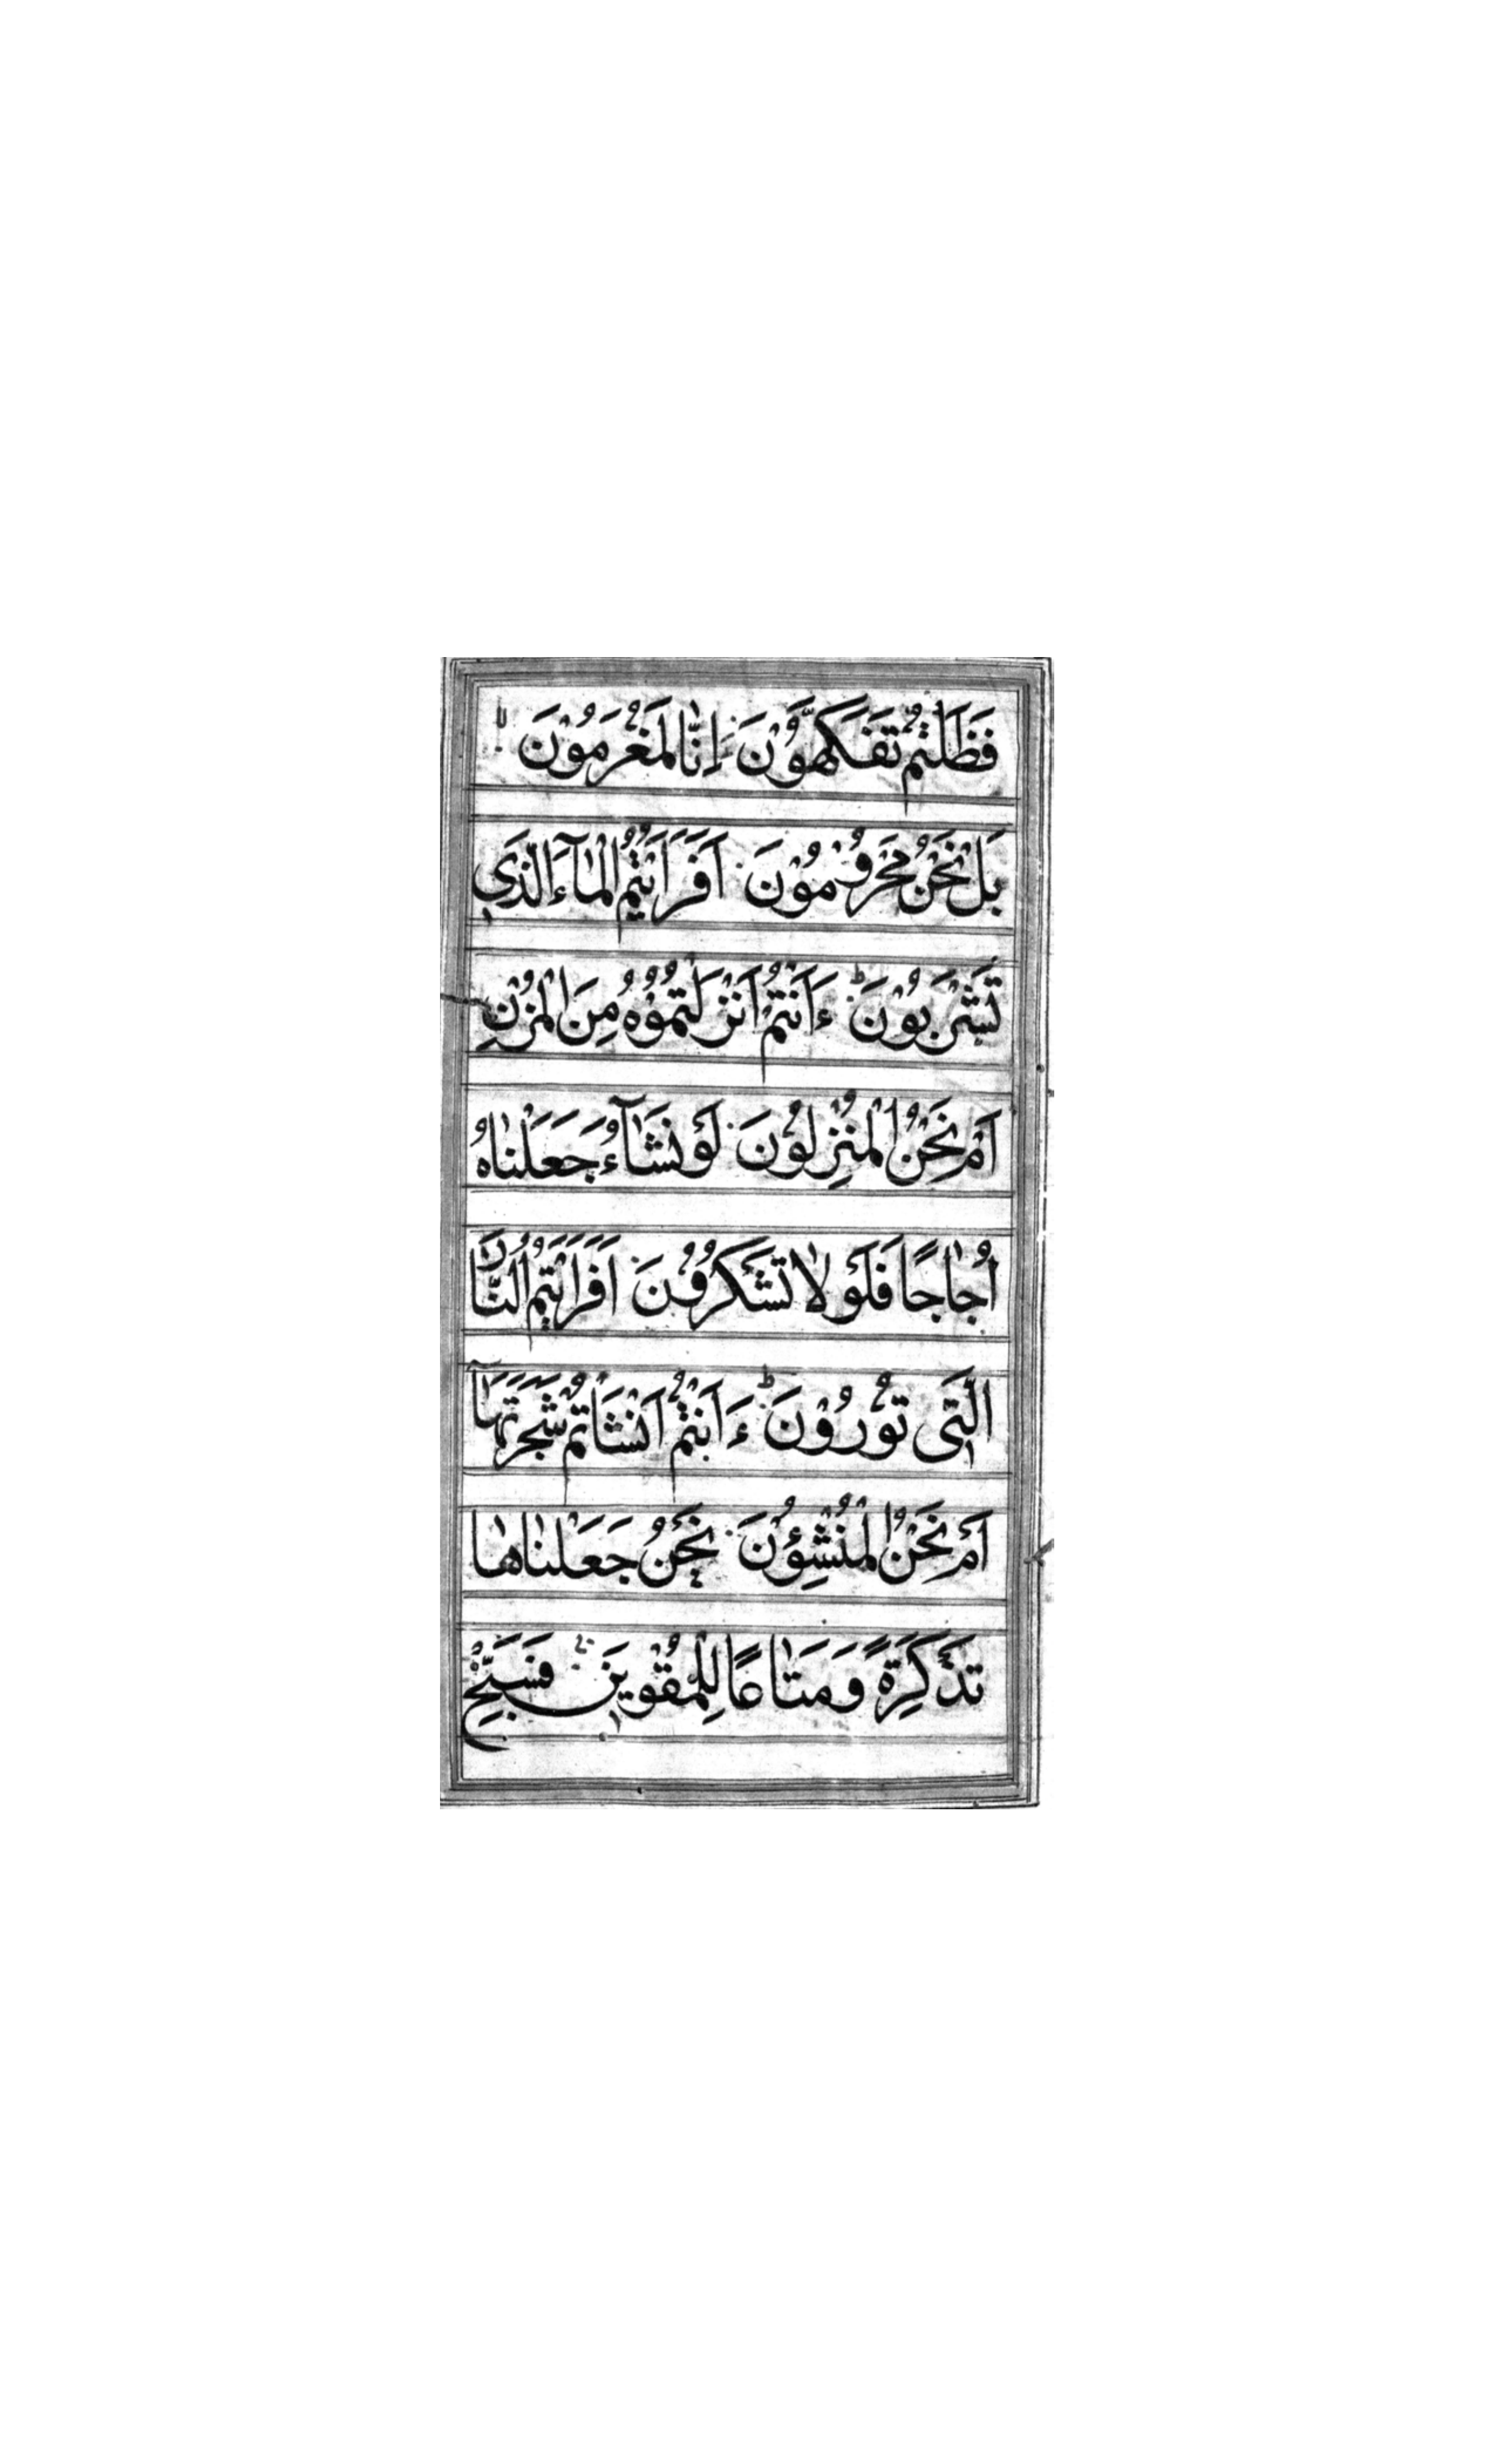 فَظَلْتُمْ تَفَكَّهُوْنَ اِنَّا لَمُغْرَمُوْنَ
بَلْ نَحْنُ مَحْرُوْمُوْنَ اَفَرَاَيْتُمُ الْمَآءَ الَّذَي
تَشْرَبُوْنَ ءَاَنْتُمْ اَنْزَلْتُمُوْهُ مِنَ الْمُزْنِ
اَمْ نَحْنُ الْمُنْزِلُوْنَ لَوْ نَشَآءُ جَعَلْنَاهُ
اُجَاجًا فَلَوْلَا تَشْكُرُوْنَ اَفَرَاَيْتُمُ النَّارَ
الَّتِى تُوْرُوْنَ ءَاَنْتُمْ اَنْشَاْتُمْ شَجَرَتَهَآ
اَمْ نَحْنُ الْمُنْشِؤُنَ نَحْنُ جَعَلْنَاهَا
تَذْكِرَةً وَمَتَاعًا لِلْمُقْوِيَنَ فَسَبِّحْ